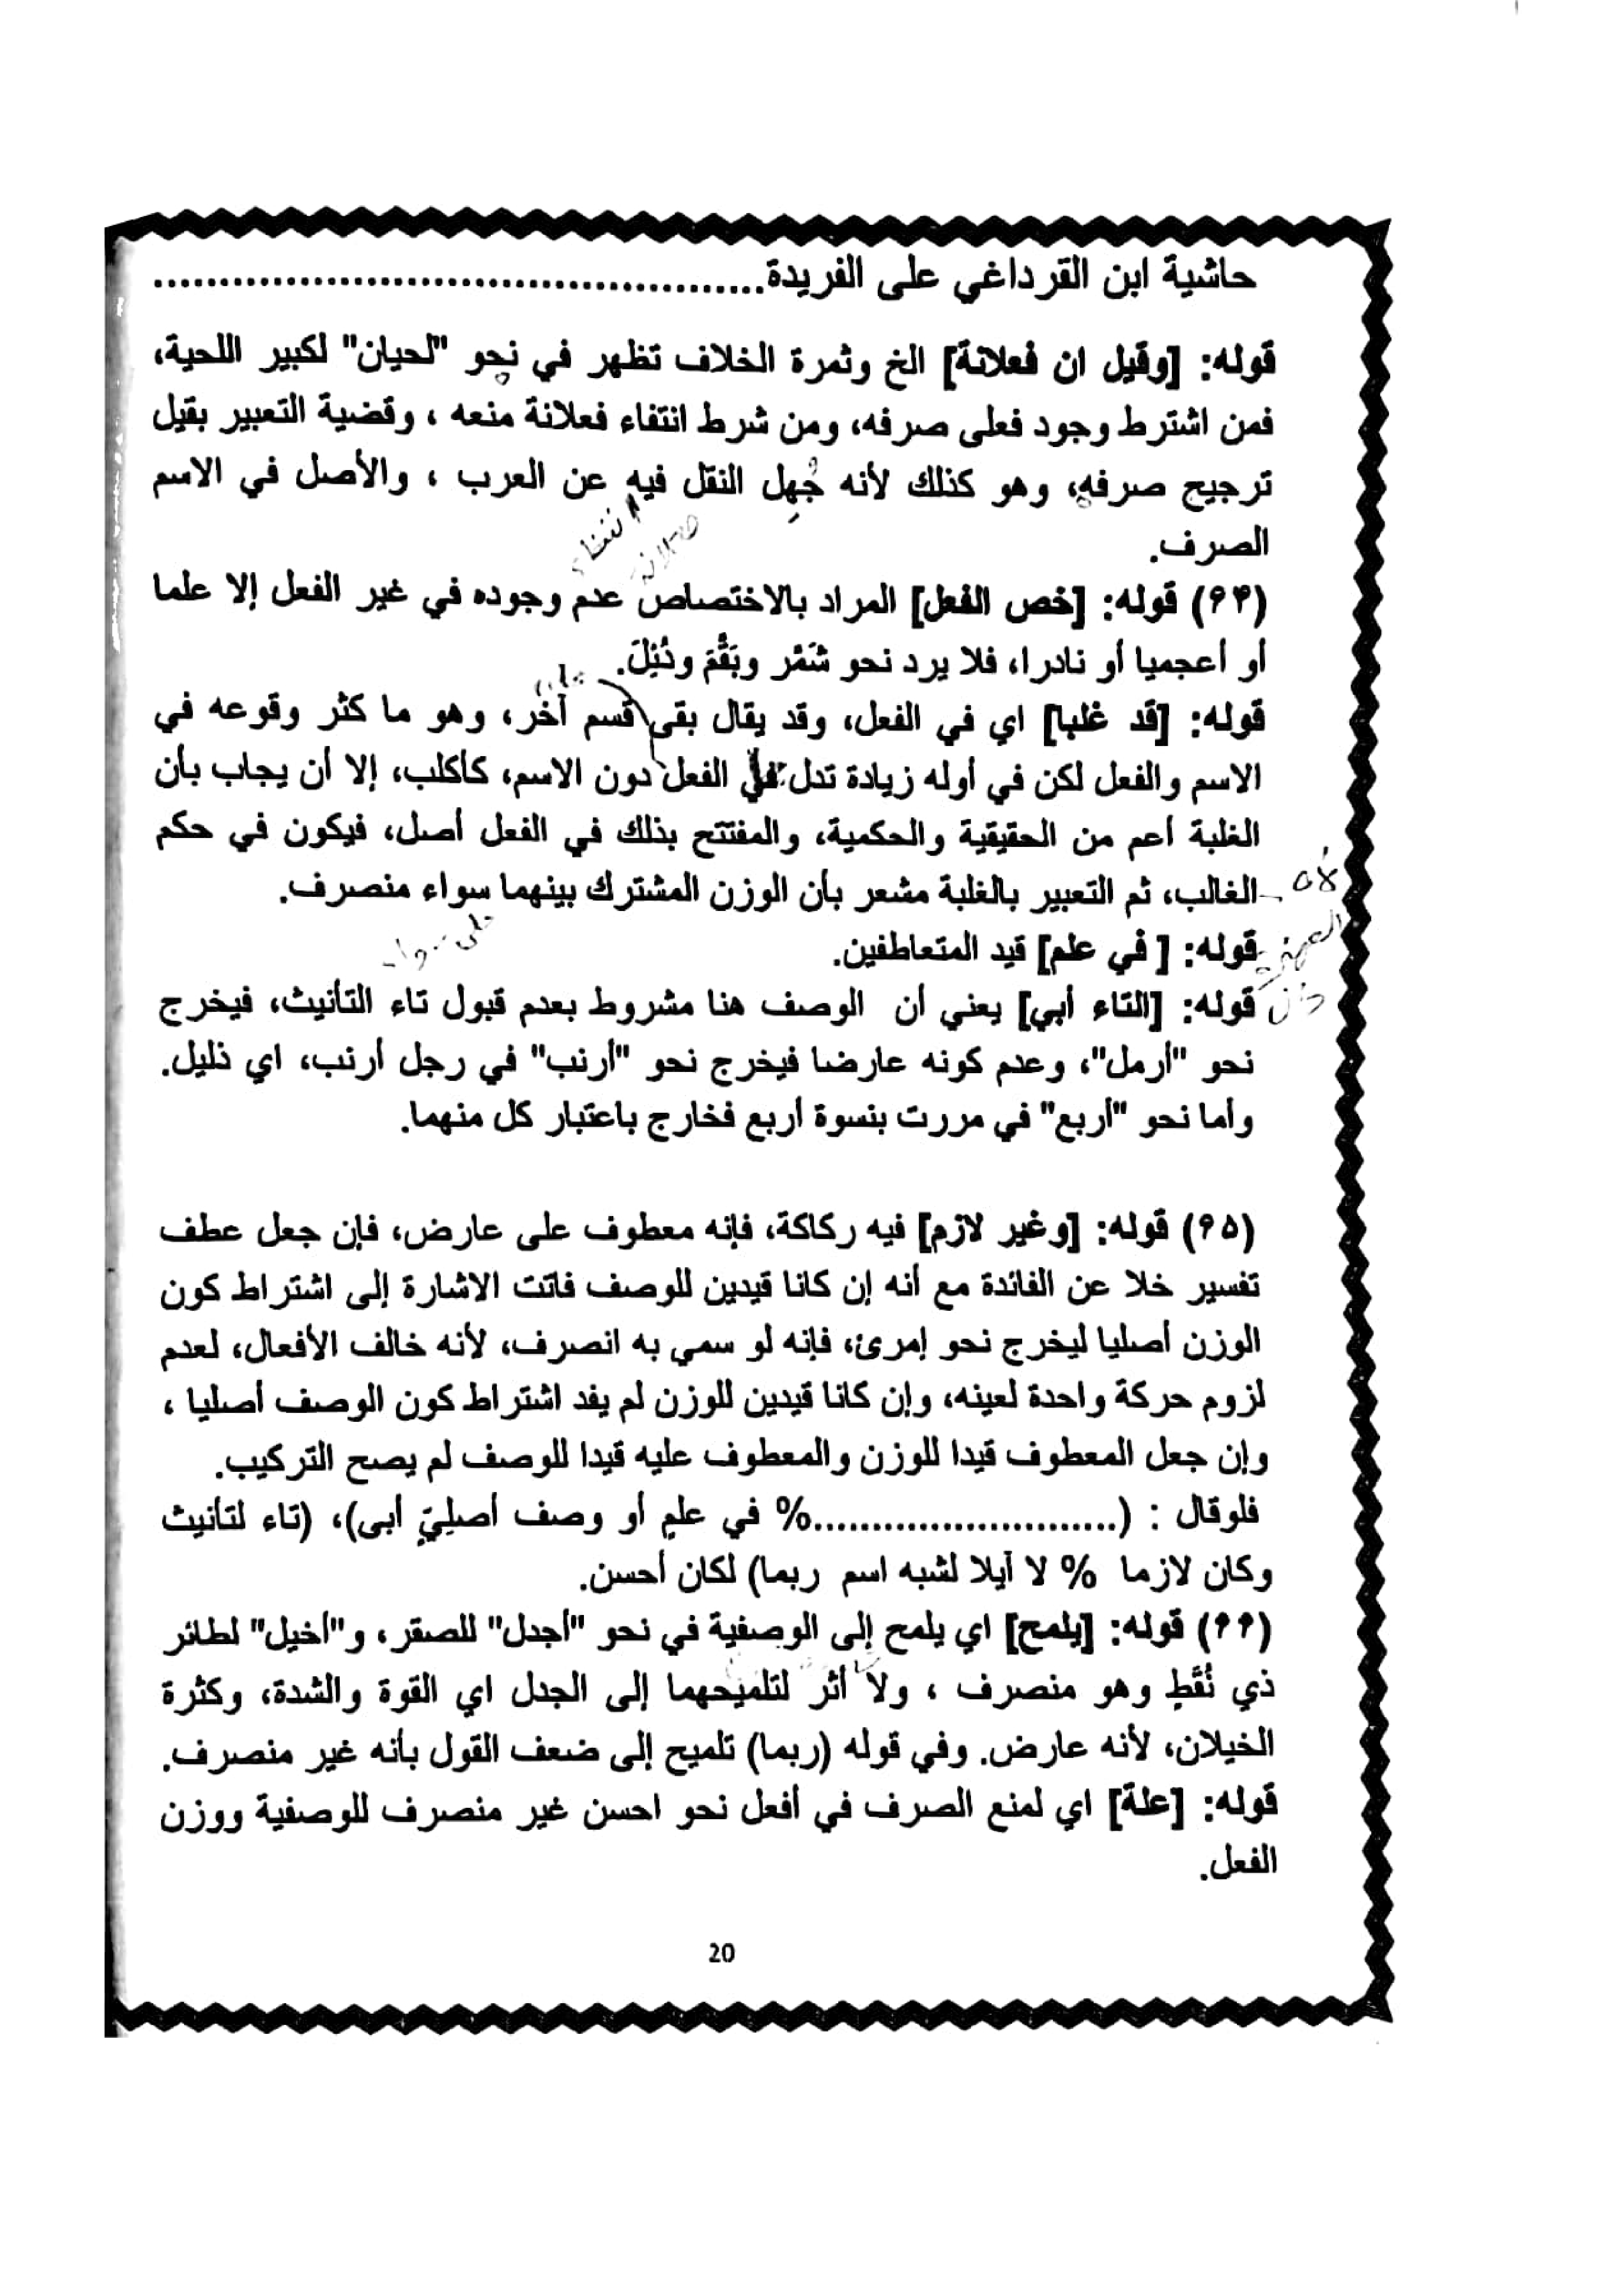 حاشية ابن القرداغي على الفريدة..............................................
قوله: [وقيل ان فعلانة] الخ وثمرة الخلاف تظهر في نحو "لحيان" لكبير اللحية،
فمن اشترط وجود فعلى صرفه، ومن شرط انتفاء فعلانة منعه ، وقضية التعبير بقيل
ترجيح صرفه، وهو كذلك لأنه جُهِل النقل فيه عن العرب ، والأصل في الاسم
الصرف.
(۶۴) قوله: [خص الفعل] المراد بالاختصاص عدم وجوده في غير الفعل إلا علما
أو أعجميا أو نادرا، فلا يرد نحو شَمَّر وبَقَّمَ ودُئِلَ.
قوله: [قد غلبا] اي في الفعل، وقد يقال بقى قسم آخر، وهو ما كثر وقوعه في
الاسم والفعل لكن في أوله زيادة تدل في الفعل دون الاسم، كأكلب، إلا أن يجاب بأن
الغلبة أعم من الحقيقية والحكمية، والمفتتح بذلك في الفعل أصل، فيكون في حكم
الغالب، ثم التعبير بالغلبة مشعر بأن الوزن المشترك بينهما سواء منصرف.
قوله: [ في علم] قيد المتعاطفين.
قوله: [التاء أبي] يعني أن الوصف هنا مشروط بعدم قبول تاء التأنيث، فيخرج
نحو "أرمل"، وعدم كونه عارضا فيخرج نحو "أرنب" في رجل أرنب، اي ذليل.
وأما نحو "أربع" في مررت بنسوة أربع فخارج باعتبار كل منهما.
(۶۵) قوله: [وغير لازم] فيه ركاكة، فإنه معطوف على عارض، فإن جعل عطف
تفسير خلا عن الفائدة مع أنه إن كانا قيدين للوصف فاتت الاشارة إلى اشتراط كون
الوزن أصليا ليخرج نحو إمرئ، فإنه لو سمي به انصرف، لأنه خالف الأفعال، لعدم
لزوم حركة واحدة لعينه، وإن كانا قيدين للوزن لم يفد اشتراط كون الوصف أصليا ،
وإن جعل المعطوف قيدا للوزن والمعطوف عليه قيدا للوصف لم يصح التركيب.
فلوقال : (..........................% في علمٍ أو وصف أصلِيٍّ أبى)، (تاء لتأنيث
وكان لازما % لا آيلا لشبه اسم ربما) لكان أحسن.
(۶۶) قوله: [يلمح] اي يلمح إلى الوصفية في نحو "أجدل" للصقر، و"أخيل" لطائر
ذي نُقَطٍ وهو منصرف ، ولا أثر لتلميحهما إلى الجدل اي القوة والشدة، وكثرة
الخيلان، لأنه عارض. وفي قوله (ربما) تلميح إلى ضعف القول بأنه غير منصرف.
قوله: [علة] اي لمنع الصرف في أفعل نحو احسن غير منصرف للوصفية ووزن
الفعل.
20